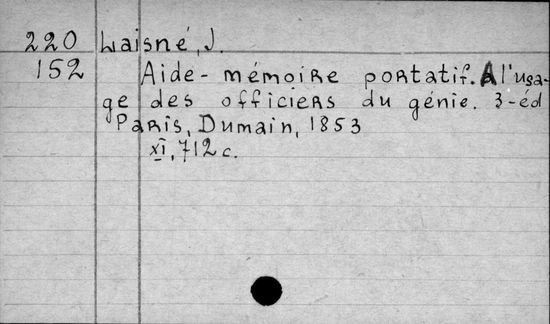 220 Laisné, J.
152 Aide-mémoire portatif. A l'usa-
ge des officiers du génie. 3-éd
Paris, Dumain, 1853
XI, 712 c.